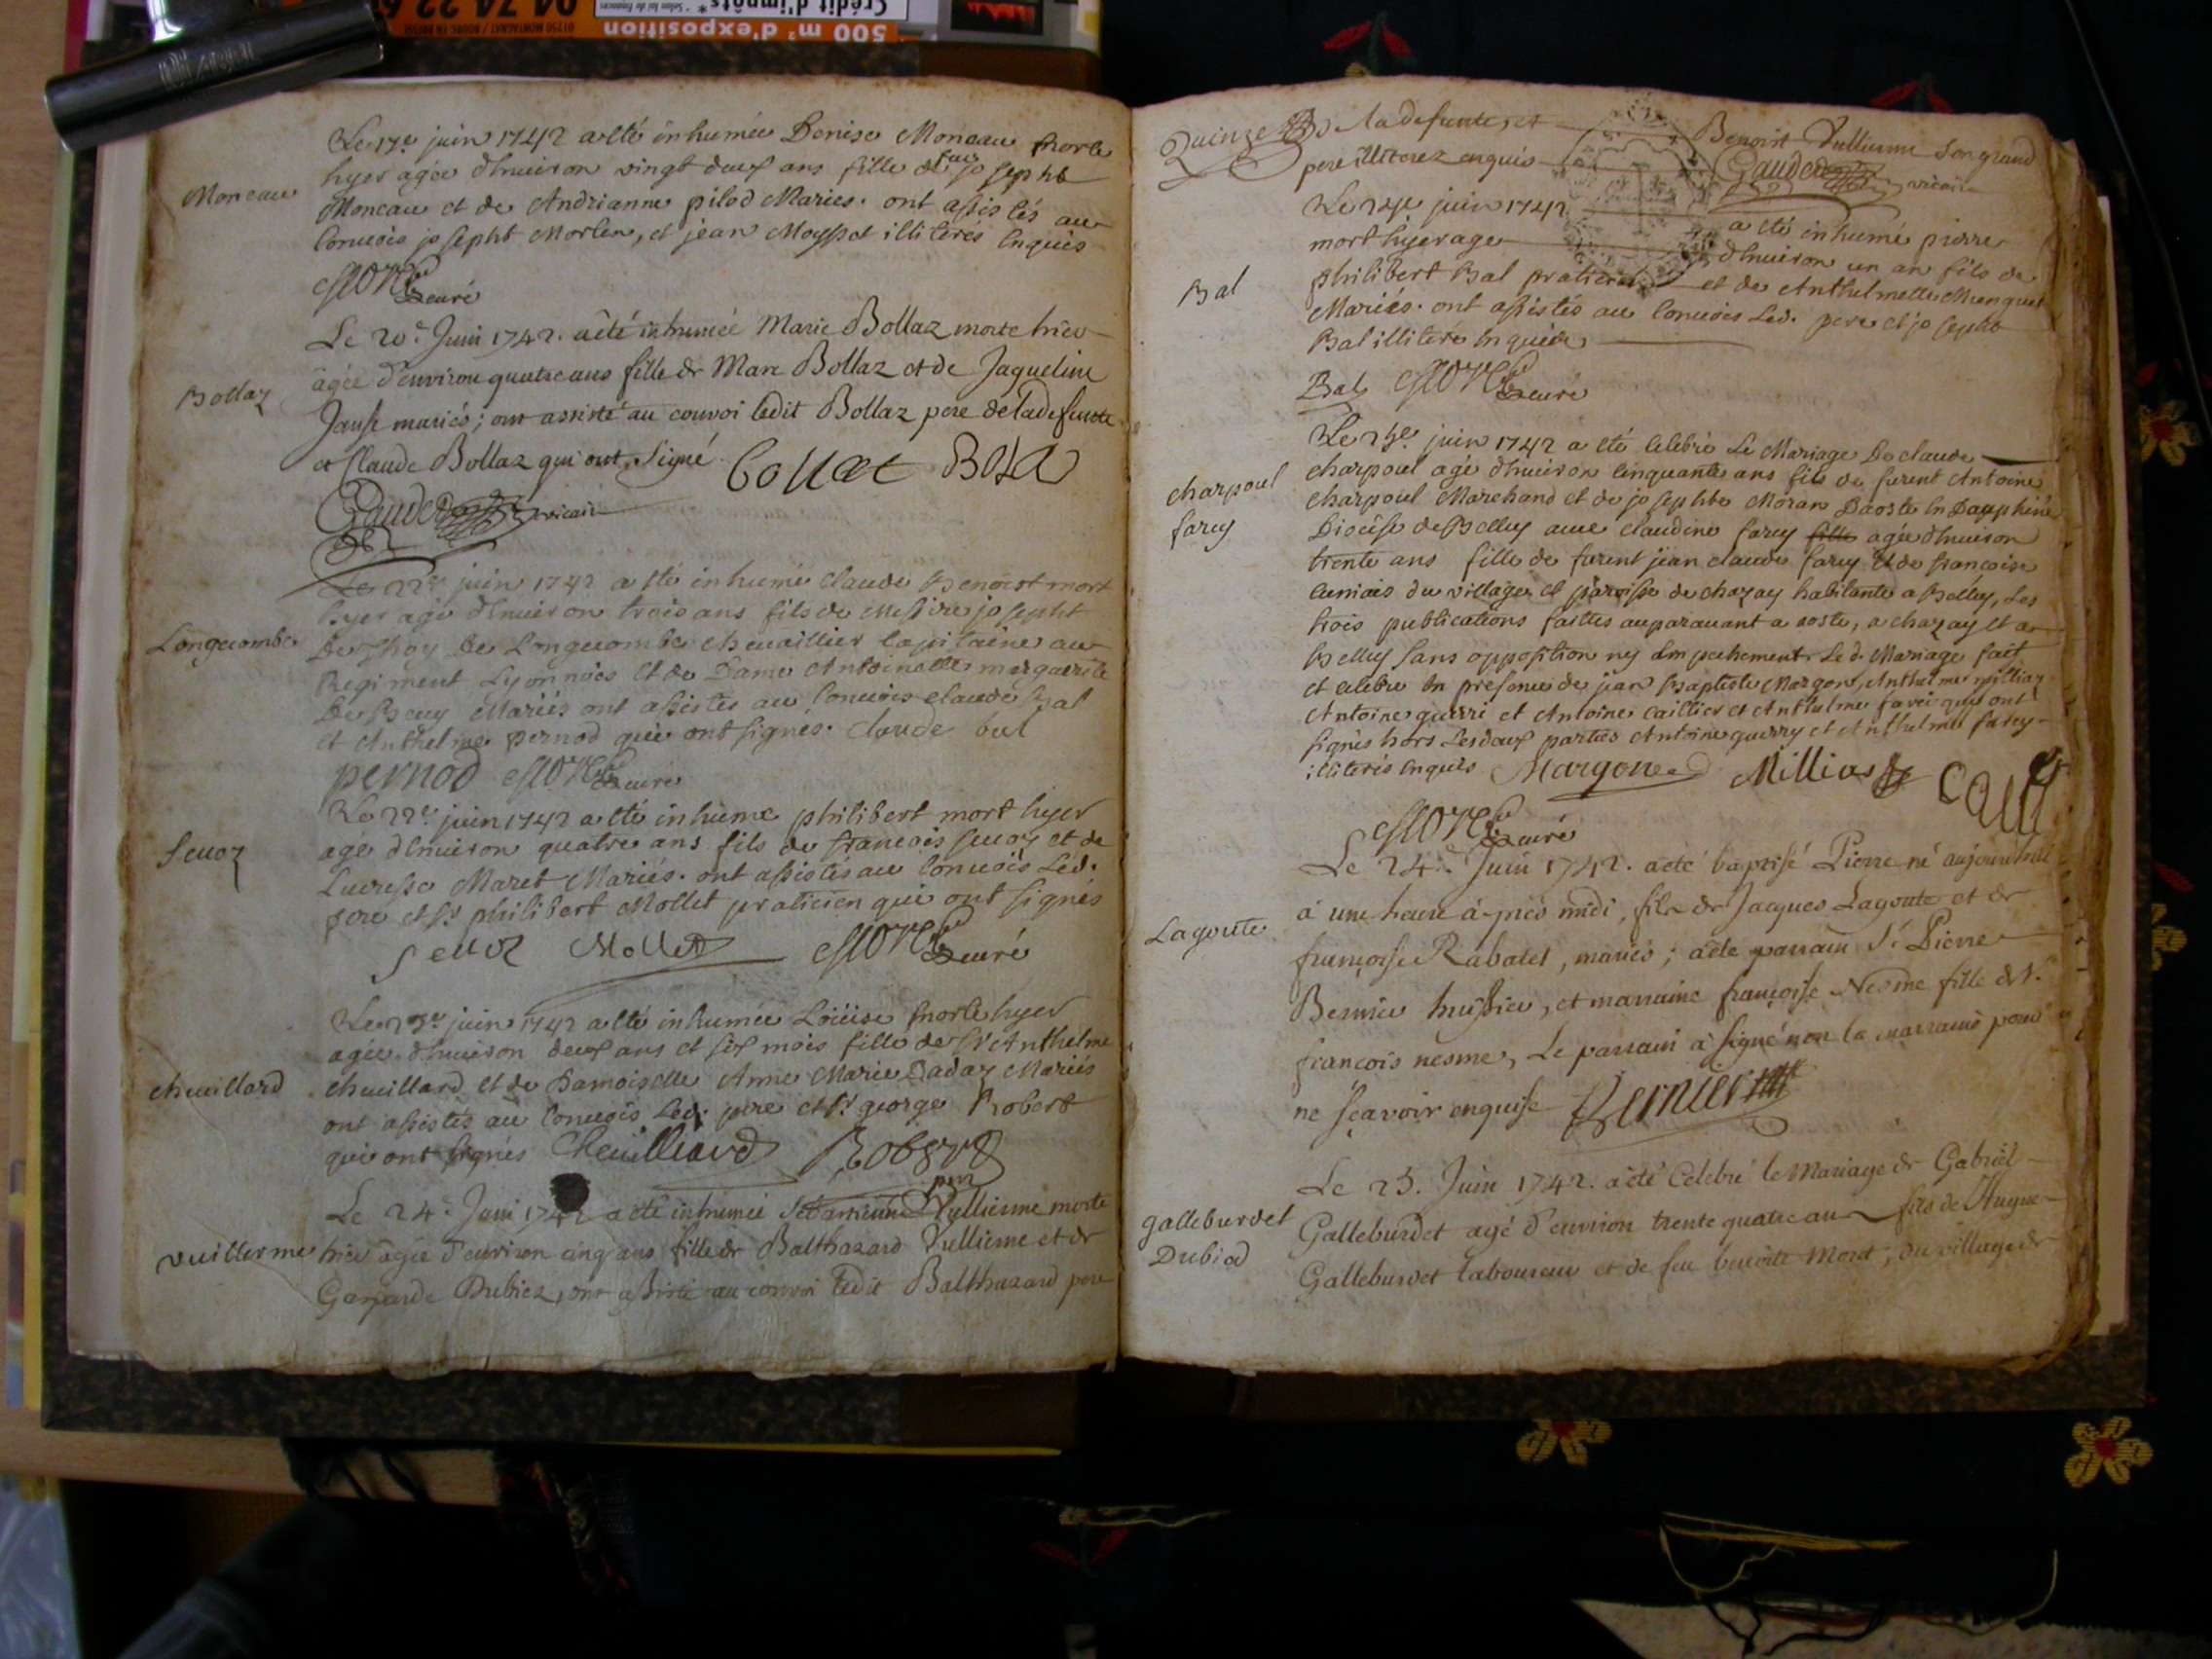 500 m² d'exposition
Crédit d'impôts*
Moneau
Le 17e juin 1742 a eté inhumée Denise Moneau morte
hyer agée d'enuiron vingt deux ans fille de feu josepht
Moneau et de Andrianne pilod Mariés. ont assistés au
Conuois josepht Morlen, et jean Moysset illiterés enquis
curé
Bollaz
Le 20e. Juin 1742. a été inhumée Marie Bollaz morte hier
agée d'environ quatre ans fille de Marc Bollaz et de Jaqueline
mariés; ont assisté au convoi ledit Bollaz pere de la defunte
et Claude Bollaz qui ont signé
vicaire
Longecombe
Le 22e juin 1742 a eté inhumé claude Benoist mort
hyer agé d'enuiron trois ans fils de Messire josepht
De Longecombe cheuaillier Capitaine au
Regiment Lyonnois et de Dame Antoinette marguerite
Mariés ont assistés au Conuois claude Bal
et Anthelme pernod qui ont signés. claude bal
pernod curé
Seuoz
Le 22e juin 1742 a eté inhumé philibert mort hyer
agé d'enuiron quatre ans fils de francois seuoz et de
Lucresse Maret Mariés. ont assistés au Conuois Led.
pere et Sr philibert Mollet praticien qui ont signés
Seuoz Mollet curé
cheuillard
Le 23e juin 1742 a eté inhumée Loüise morte hyer
agée d'enuiron deux ans et six mois fille de Sr Anthelme
cheuillard et de Damoiselle Anne Marie Daday Mariés
ont assistés au Conuois Led. pere et Sr george Robert
qui ont signés Cheuilliard Robert
vuillerme
Le 24e. Juin 1742 a été inhumée Vullierme morte
hier agée d'environ cinq ans fille de Balthazard Vullierme et de
Dubiez, ont assisté au convoi ledit Balthazard pere
Quinze
de la defunte, et Benoist Vullierme son grand
pere illiterez enquis vicaire
Bal
Le 24e juin 1742 a eté inhumé pierre
mort hyer age d'enuiron un an fils de
philibert Bal praticien et de Anthelmette
Mariés. ont assistés au Conuois Led. pere et josepht
Bal illiteré enquis
Bal curé
charpoul
farcy
juin 1742 a eté Celebré Le Mariage De claude
charpoul agé d'enuiron Cinquante ans fils de furent Antoine
charpoul Marchand et de josephte Moran Daoste en Dauphiné
Diocése de Belley auec claudine farcy fille agée d'enuiron
trente ans fille de furent jean claude farcy et de francoise
du village et paroisse de chazay habitante a Belley, Les
trois publications faittes auparauant a aoste, a chazay et a
Belley sans opposition ny empechement. Le d. Mariage fait
et celebré en presence de jean Baptiste Margon, Anthelme milliaz
Antoine guerri et Antoine caillier et Anthelme farci qui ont
signés hors Lesdeux parties Antoine guerry et Anthelme farcy
illiterés enquis Margone
curé
Lagoute
Le 24e. Juin 1742. a été baptisé Pierre né aujourd'hui
à une heure après midi, fils de Jacques Lagoute et de
françoise Rabatel, mariés; a été parrain Sr Pierre
Bernier hussier, et marraine françoise Nesme fille de Sr.
françois nesme, Le parrain a signé non la marraine pour
ne sçavoir enquise Bernier
galleburdet
Dubiod
Le 25. Juin 1742. a été Celebré le Mariage de Gabriël
Galleburdet agé d'environ trente quatre ans fils de Hugue
Galleburdet laboureur et de feu benoite Moret, du village de